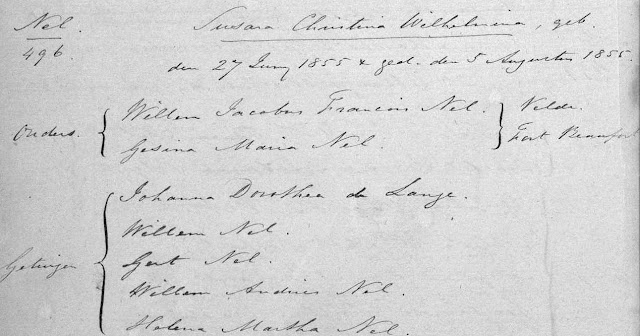 Nel. Susara Christina Wilhelmina, geb.
496 den 27 Juny 1855 & ged. den 5 Augustus 1855.
Ouders. Willem Jacobus Francois Nel. Velde.
Gesina Maria Nel. Fort Beaufort
Johanna Dorothea de Lange.
Willem Nel.
Getuigen Gert Nel.
Willem Andries Nel.
Helena Martha Nel.